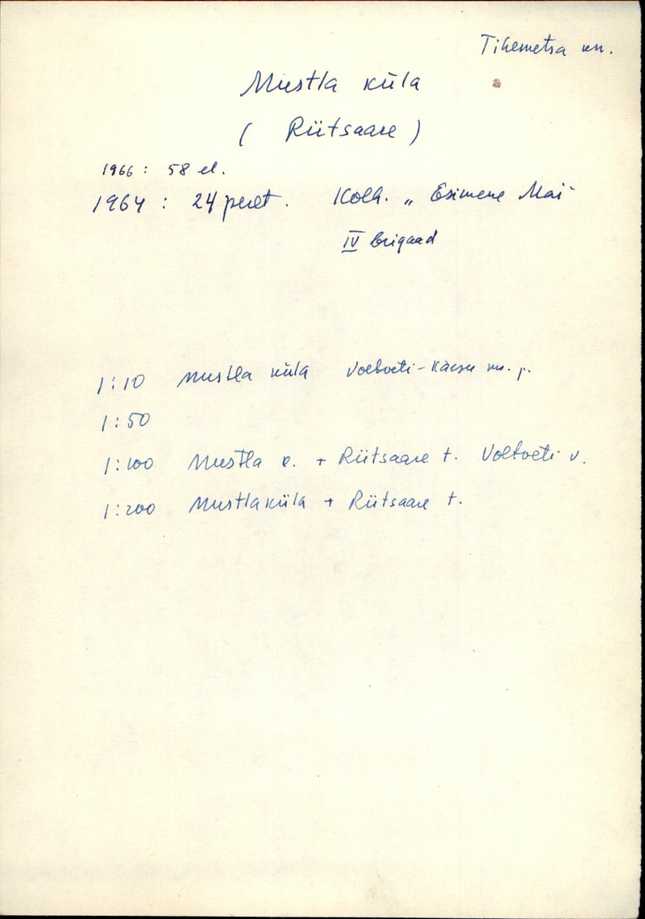 Tihemetsa kn.
Mustla küla
( Riitsaare )
1966: 58 el.
1964: 24 peret. Kolh. „ Esimene Mai "
IV brigaad
1:10 Mustla küla Voltveti-
1:50
1:100 Mustla k. + Riitsaare t. Voltveti v.
1:200 Mustlaküla + Riitsaare t.